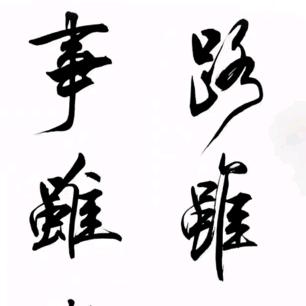 路雖
事雖